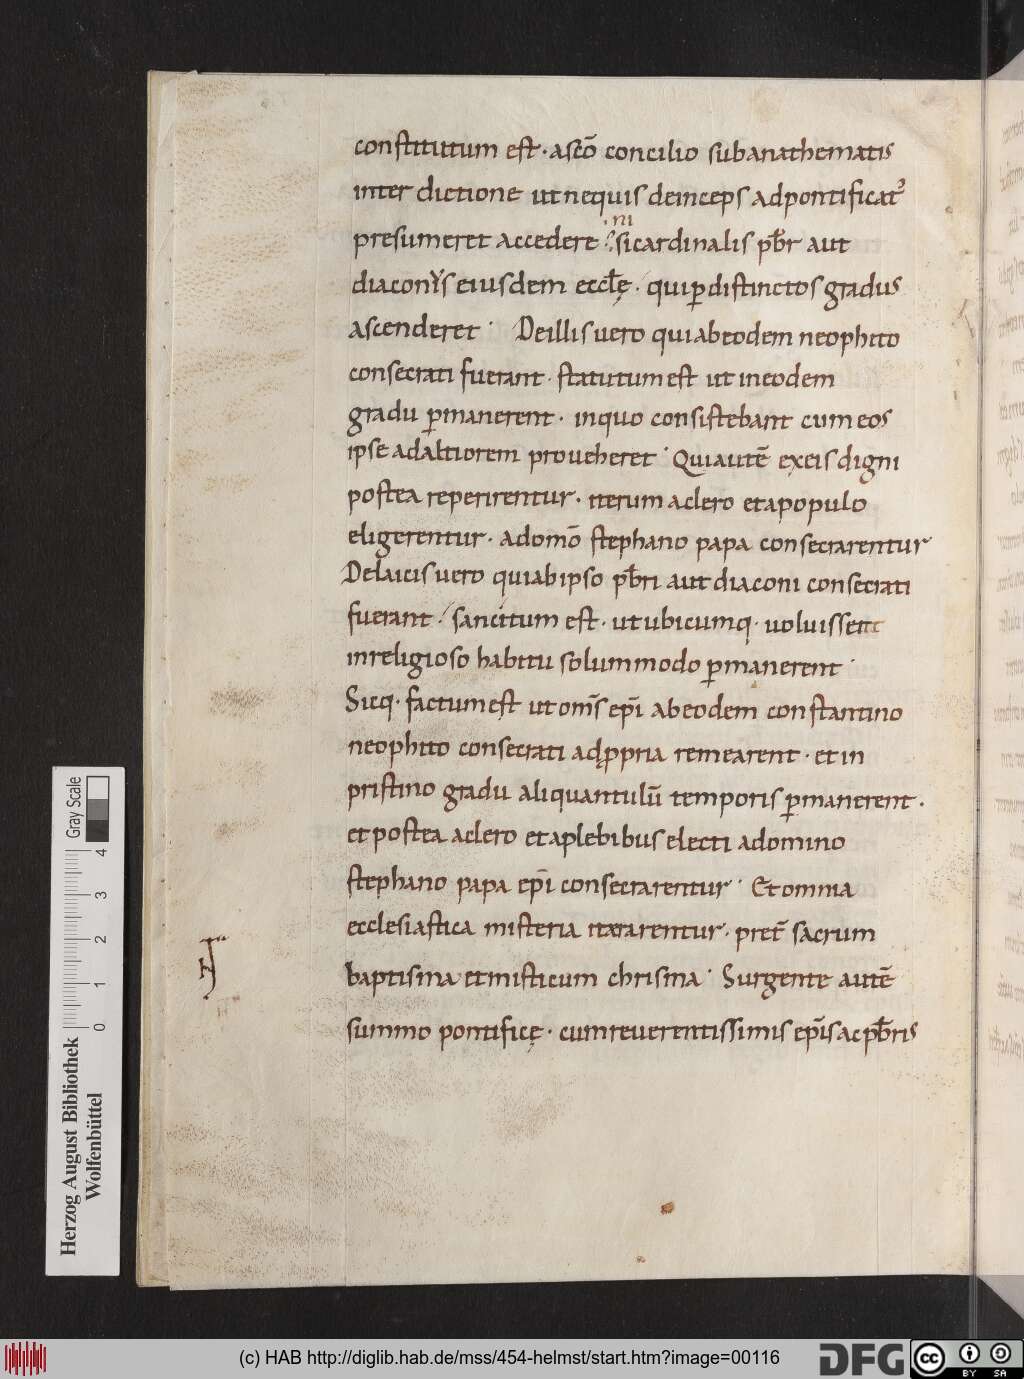 constitutum est · ascō concilio subanathematis
interdictione utnequis deinceps adpontificat᷒
presumeret accedere · nisicardinalis pƀr aut
diaconus eiusdem eccłę · quiꝑdistinctos gradus
ascenderet · Deillis uero quiabeodem neophito
consecrati fuerant · statutum est ut ineodem
gradu ꝑmanerent · inquo consistebant cum eos
ipse adaltiorem proueheret · Quiautē exeis digni
postea reperirentur · iterum aclero etapopulo
eligerentur · adomō stephano papa consecrarentur
Delaicis uero quiabipso pƀri aut diaconi consecrati
fuerant · sancitum est · ut ubicumq · uoluissent
inreligioso habitu solummodo ꝑmanerent ·
Sicq · factum est ut om̄s ep̄i abeodem constantino
neophito consecrati adꝓpria remearent · et in
pristino gradu aliquantulū temporis ꝑmanerent ·
et postea aclero etaplebibus electi adomino
stephano papa ep̄i consecrarentur · Et omnia
ecclesiastica misteria iterarentur · pret̄ sacrum
baptisma etmisticum chrisma · Surgente autē
summo pontificę · cumreuerentissimis ep̄is ac pƀris
Herzog August Bibliothek
Wolfenbüttel
Gray Scale
0 1 2 3 4
(c) HAB http://diglib.hab.de/mss/454-helmst/start.htm?image=00116
DFG
cc BY SA